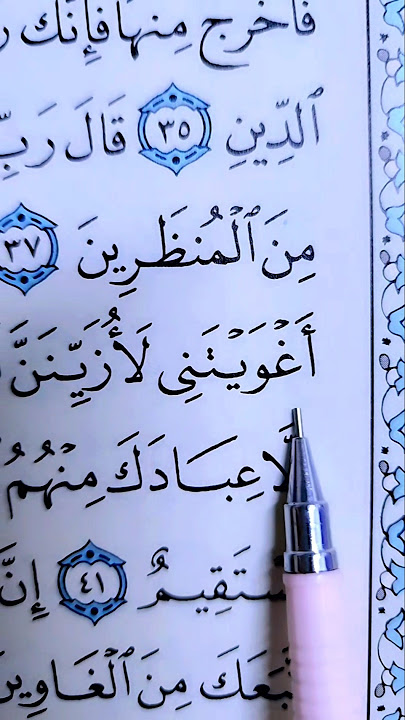 فَٱخۡرُجۡ مِنۡهَا فَإِنَّكَ
ٱلدِّينِ ٣٥ قَالَ رَبِّ
مِنَ ٱلۡمُنظَرِينَ ٣٧
أَغۡوَيۡتَنِي لَأُزَيِّنَنَّ
عِبَادَكَ مِنۡهُمُ
مُّسۡتَقِيمٌ ٤١ إِنَّ
ٱتَّبَعَكَ مِنَ ٱلۡغَاوِينَ